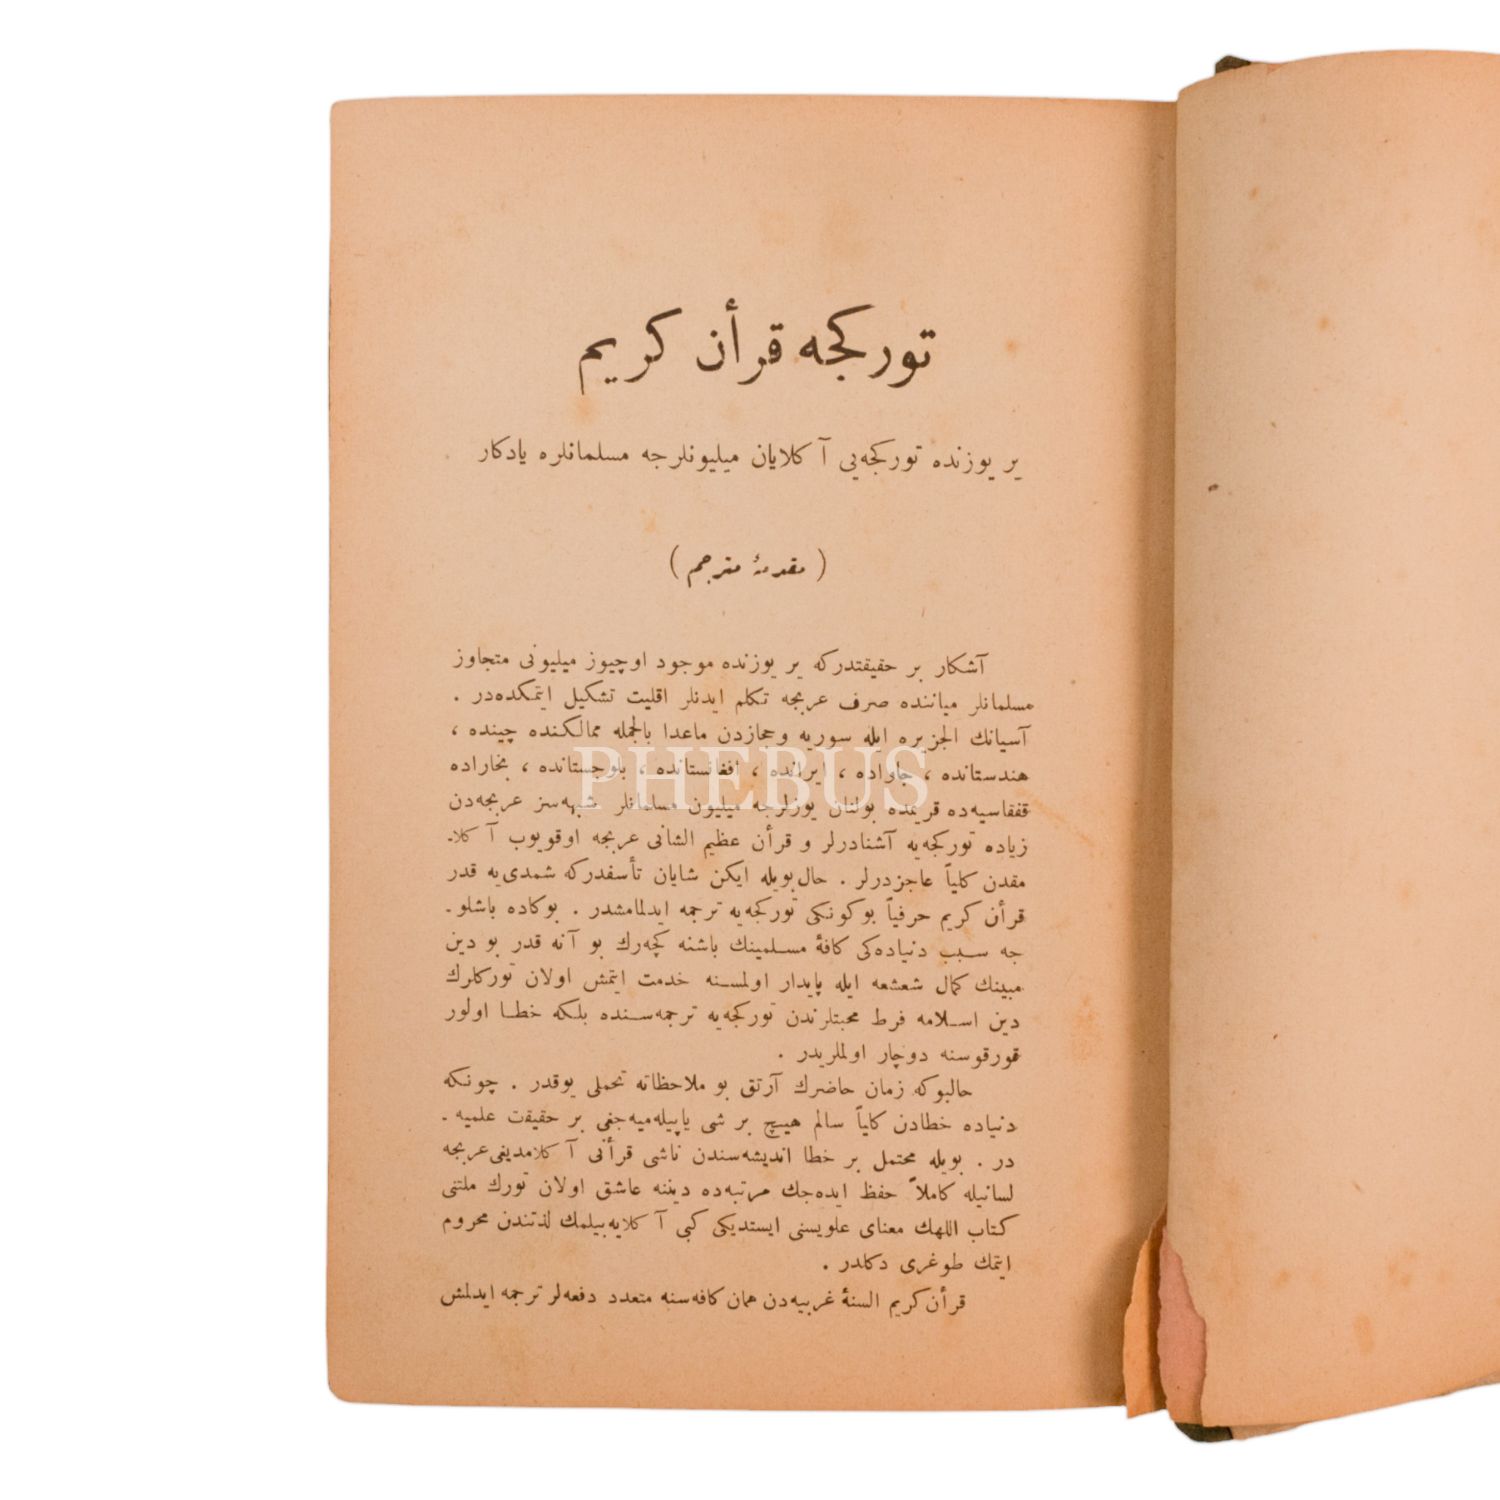 تورکجه قرأن کریم
یر یوزنده تورکجه‌یی آ کلایان میلیونلرجه مسلمانلره یادکار
( مقدمهٔ مترجم )
آشکار بر حقیقتدرکه یر یوزنده موجود اوچیوز میلیونی متجاوز
مسلمانلر میاننده صرف عربجه تکلم ایدنلر اقلیت تشکیل ایتمکده‌در .
آسیانك الجزیره ایله سوریه وحجازدن ماعدا بالجمله ممالکنده چینده ،
هندستانده ، جاواده ، ایرانده ، افغانستانده ، بلوجستانده ، بخاراده
قفقاسیه‌ده قریمده بولنان یوزلرجه میلیون مسلمانلر شبهه‌سز عربجه‌دن
زیاده تورکجه‌یه آشنادرلر و قرأن عظیم الشانی عربجه اوقویوب آ کلا-
مقدن کلیاً عاجزدرلر . حال‌بویله ایکن شایان تأسفدرکه شمدی‌یه قدر
قرأن کریم حرفیاً بوکونکی تورکجه‌یه ترجمه ایدلمامشدر . بوکاده باشلو-
جه سبب دنیاده‌کی کافهٔ مسلمینك باشنه کچه‌رك بو آنه قدر بو دین
مبینك کمال شعشعه ایله پایدار اولمسنه خدمت ایتمش اولان تورکلرك
دین اسلامه فرط محبتلرندن تورکجه‌یه ترجمه‌سنده بلکه خطا اولور
قورقوسنه دوچار اولملریدر .
حالبوکه زمان حاضرك آرتق بو ملاحظاته تحملی یوقدر . چونکه
دنیاده خطادن کلیاً سالم هیچ بر شی یاپیله‌میه‌جغی بر حقیقت علمیه -
در . بویله محتمل بر خطا اندیشه‌سندن ناشی قرأنی آ کلامدیغی عربجه
لسانیله کاملاً حفظ ایده‌جك مرتبه‌ده دیننه عاشق اولان تورك ملتنی
کتاب اللهك معنای علویسنی ایستدیکی کبی آ کلایه‌بیلمك لذتندن محروم
ایتمك طوغری دکلدر .
قرأن کریم السنهٔ غربیه‌دن همان کافه‌سنه متعدد دفعه‌لر ترجمه ایدلمش
PHEBUS